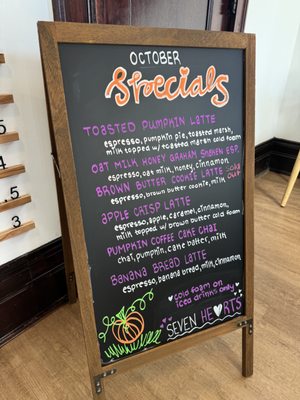 OCTOBER
Specials
TOASTED PUMPKIN LATTE
espresso, pumpkin pie, toasted marsh,
milk topped w/ toasted marsh cold foam
OAT MILK HONEY GRAHAM SHAKEN ESP.
espresso, oat milk, honey, cinnamon
BROWN BUTTER COOKIE LATTE SOLD OUT
espresso, brown butter cookie, milk
APPLE CRISP LATTE
espresso, apple, caramel, cinnamon,
milk topped w/ brown butter cold foam
PUMPKIN COFFEE CAKE CHAI
chai, pumpkin, cake batter, milk
BANANA BREAD LATTE
espresso, banana bread, milk, cinnamon
cold foam on
iced drinks only
SEVEN HEARTS
5
4
5.5
9.5